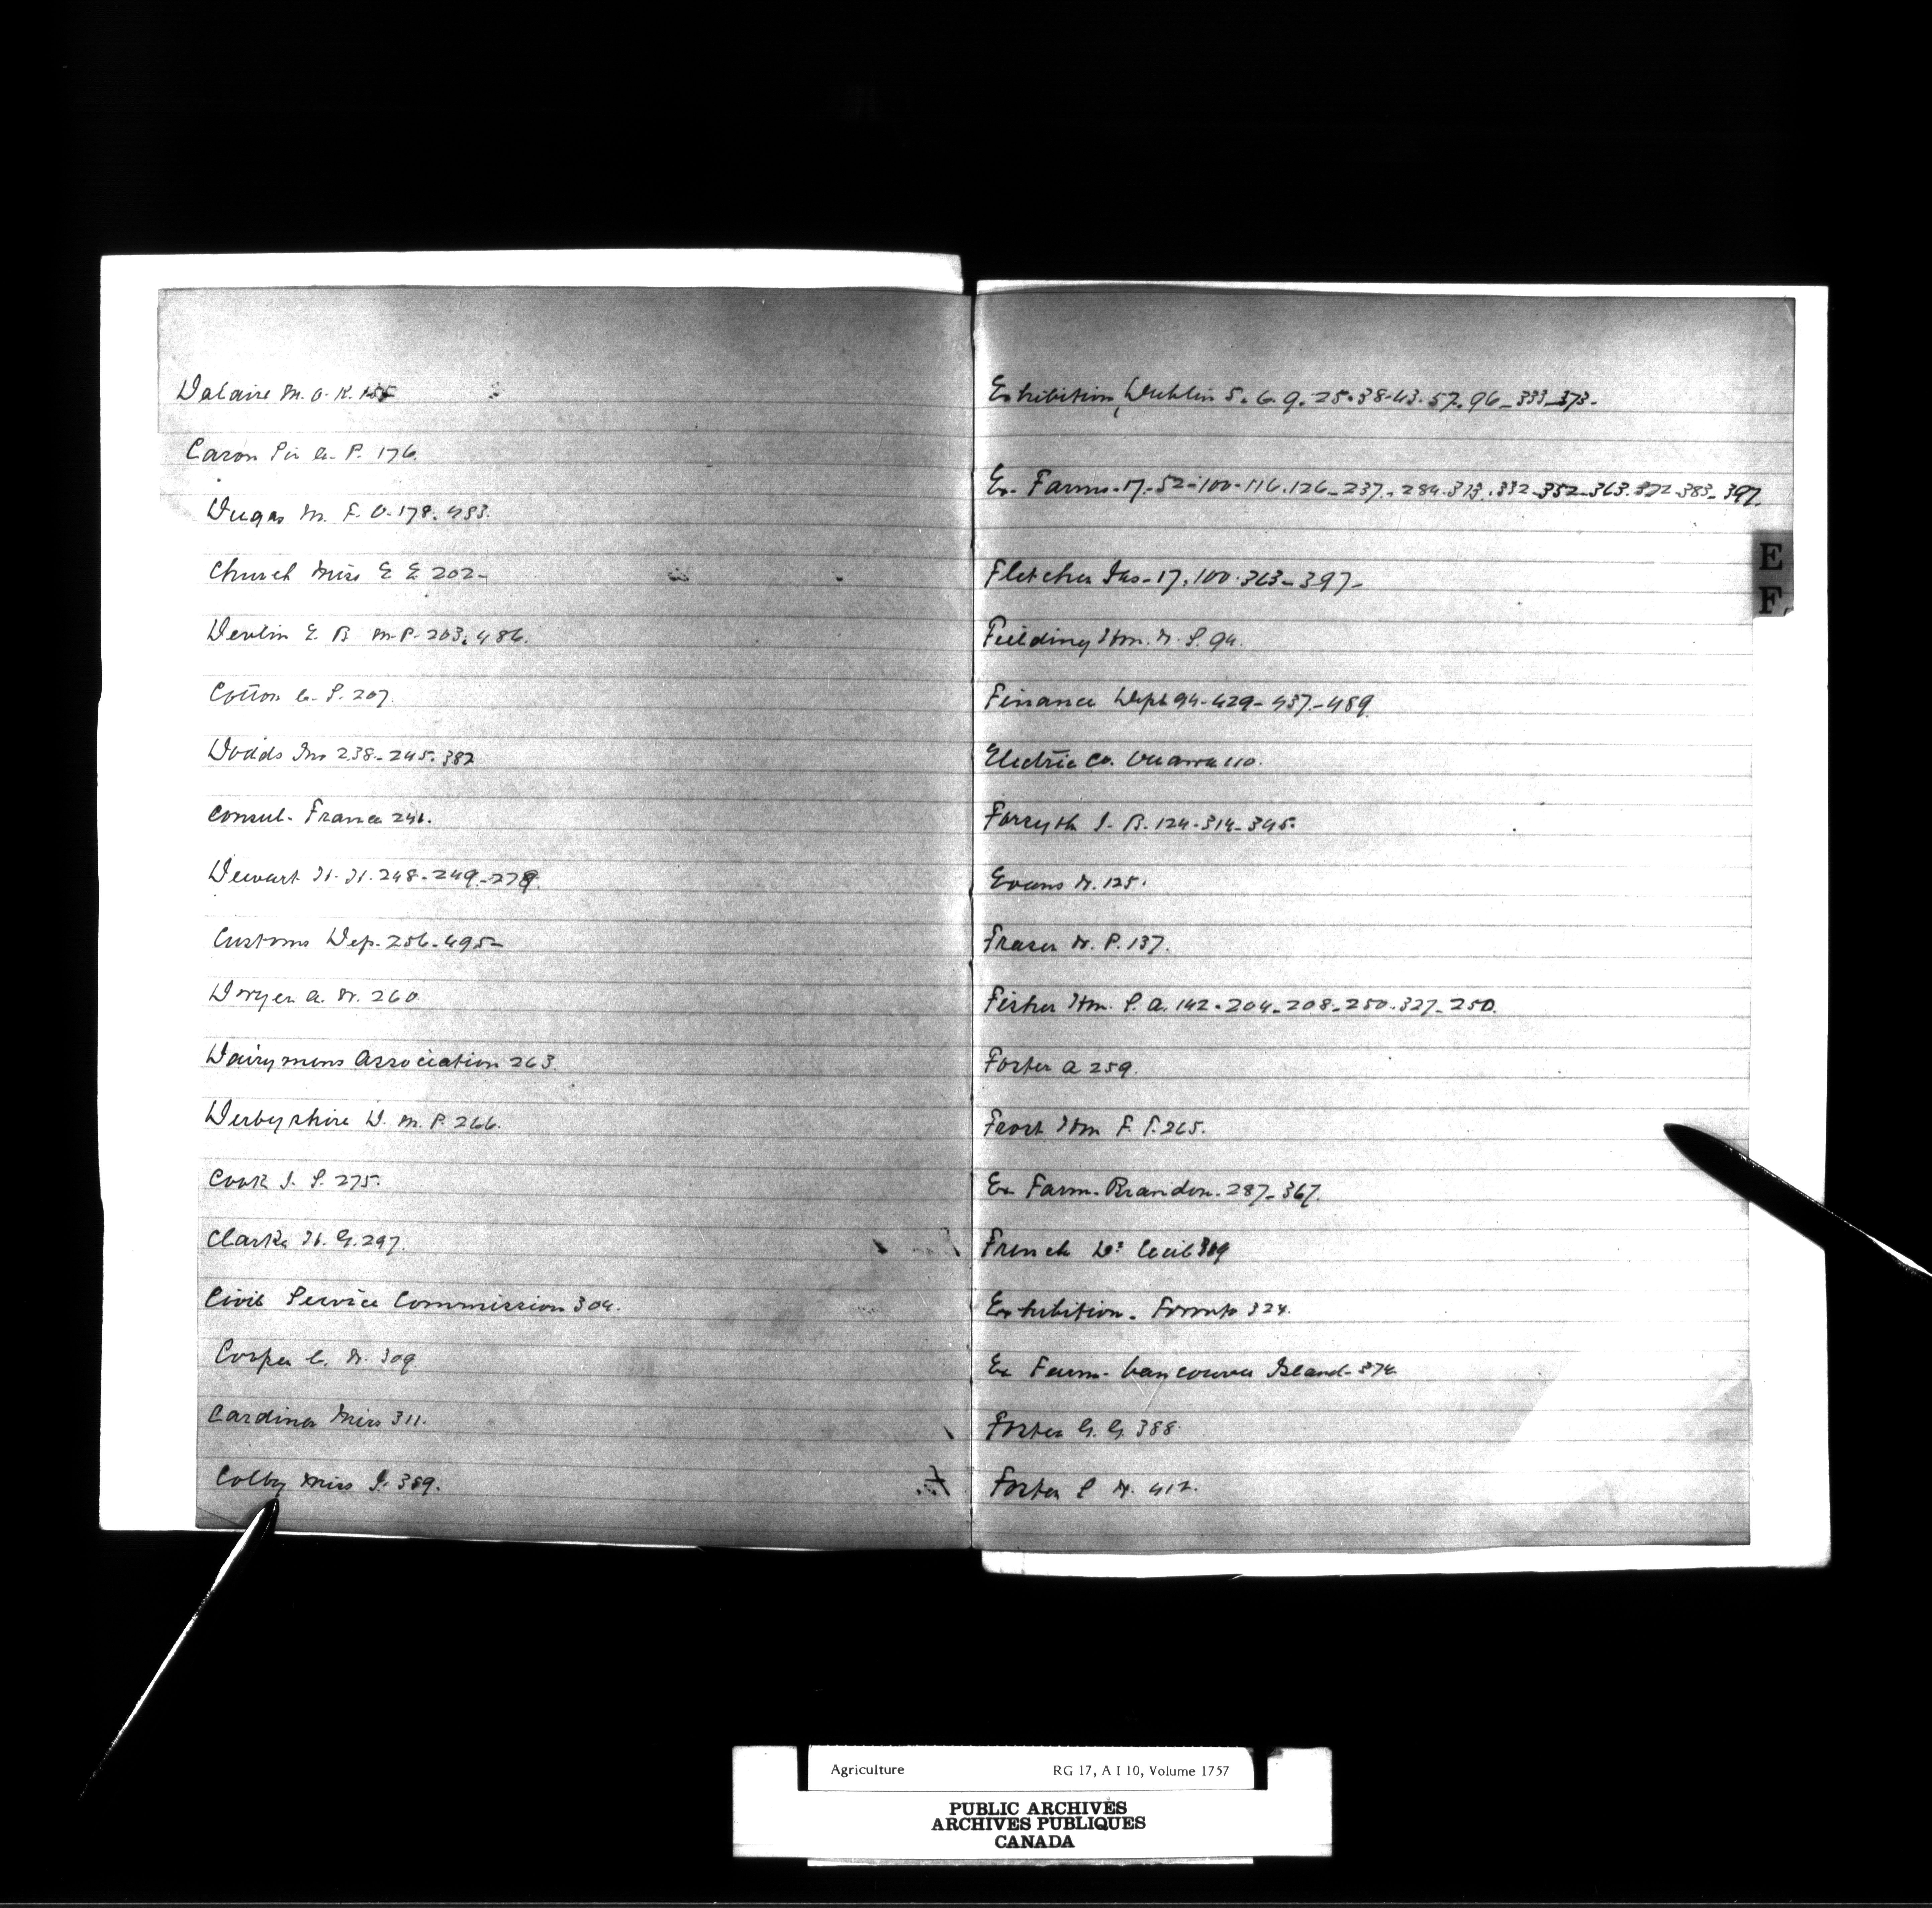 Dalaire M. O. K. 155
Caron Sir A. P. 176.
Dugas M. F. O. 178. 483.
Church Miss E E 202-
Devlin E. B M.P. 203. 486.
Cotton C. S. 207.
Dodds Jno 238-245. 382
Consul. France 241.
Dewart H. H. 248-249-279.
Customs Dep. 256-495-
Dwyer A. W. 260.
Dairymens Association 263.
Derbyshire D. M. P. 266.
Cook J. S. 275.
Clarke H. G. 297.
Civil Service Commission 304.
C. W. 309
Cardinar Miss 311.
Colby Miss J. 389.
Exhibition, Dublin 5. 6. 9. 25. 38-43. 57. 96-333-373-
Ex. Farms. 17-52-100-116. 126-237-284. 313. 332-352-363. 372-383-397.
Fletcher Jas-17. 100. 363-397-
Feilding Hon. W. S. 94.
Finance Dept 94-429-437-489.
Electric Co. Ottawa 110.
Forsyth J. B. 124-314-345.
Evans W. 125.
Fraser W. P. 137.
Fisher Hon. S. A. 142. 204-208-250-327-250.
Forter A 259.
Frost Hon F. T. 265.
Ex Farm. Brandon. 287-367.
French Dr Cecil 309
Exhibition. Toronto 324.
Ex Farm. Vancouver Island. 374
Foster G. G. 388.
Foster S W. 412.
E
F
Agriculture RG 17, A I 10, Volume 1757
PUBLIC ARCHIVES
ARCHIVES PUBLIQUES
CANADA